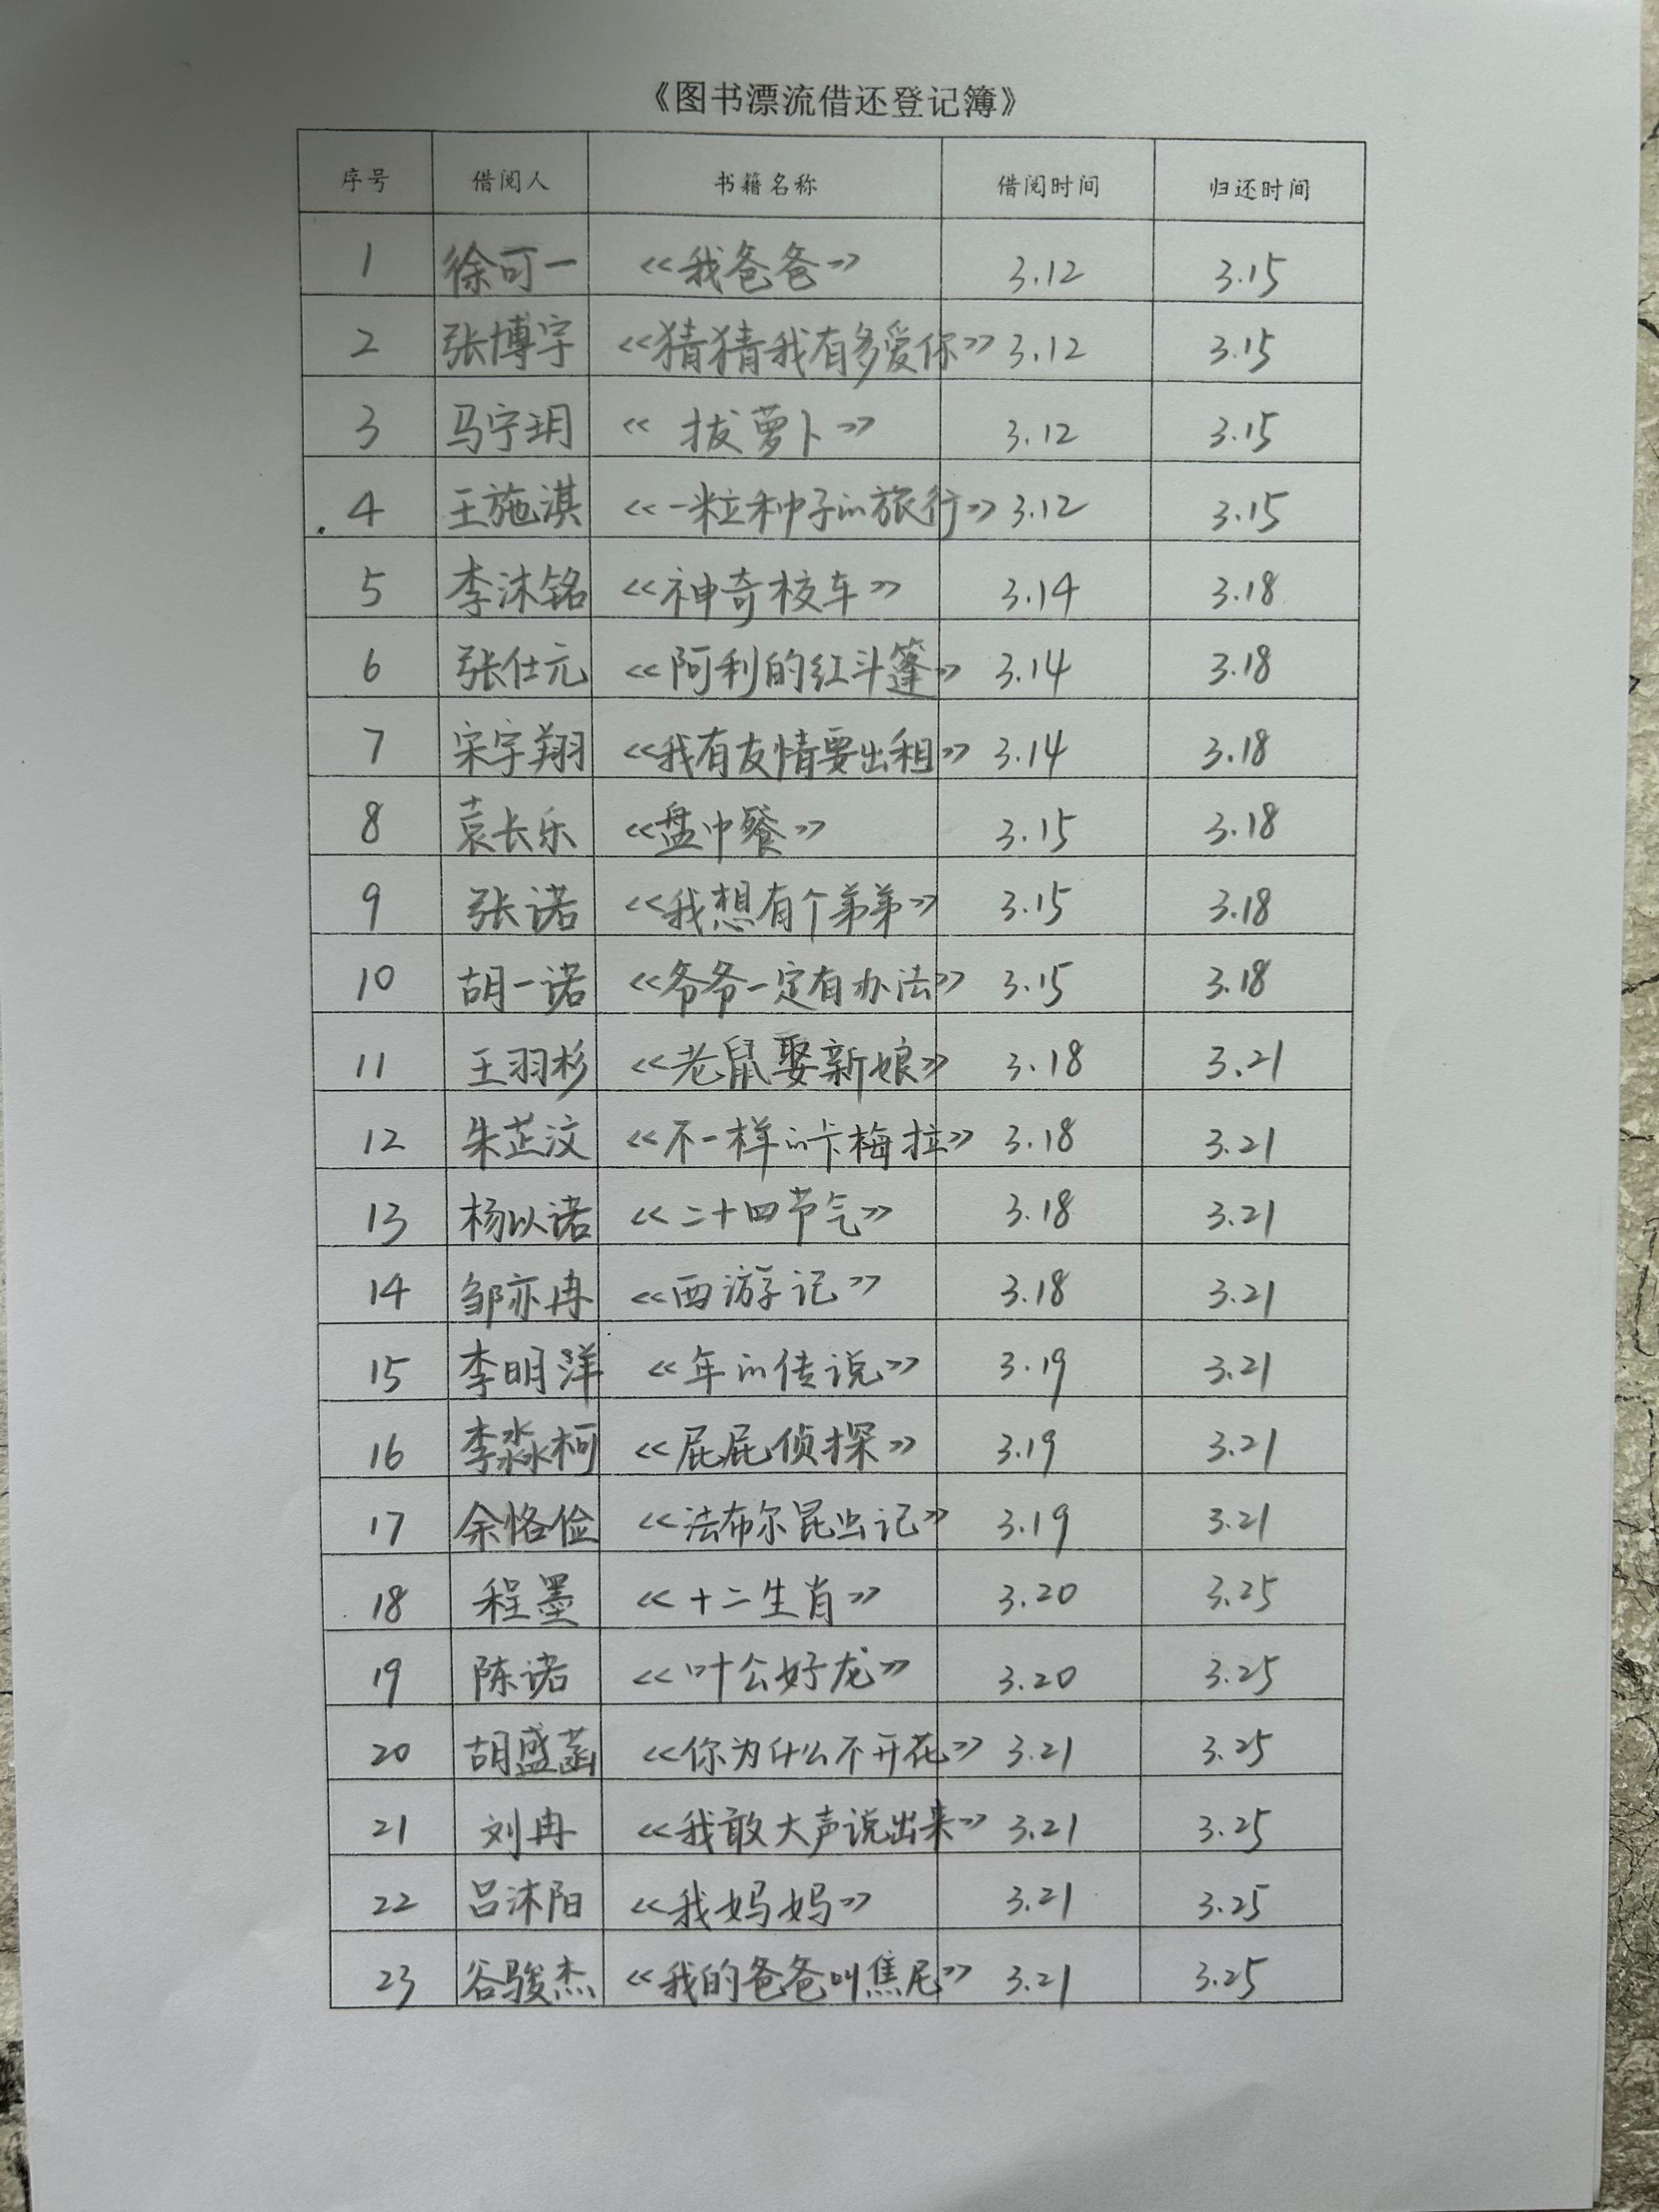 《图书漂流借还登记簿》
序号 借阅人 书籍名称 借阅时间 归还时间
1 徐可一 《我爸爸》 3.12 3.15
2 张博宇 《猜猜我有多爱你》 3.12 3.15
3 马宁玥 《拔萝卜》 3.12 3.15
4 王施淇 《一粒种子的旅行》 3.12 3.15
5 李沐铭 《神奇校车》 3.14 3.18
6 张仕元 《阿利的红斗篷》 3.14 3.18
7 宋宇翔 《我有友情要出租》 3.14 3.18
8 袁长乐 《盘中餐》 3.15 3.18
9 张诺 《我想有个弟弟》 3.15 3.18
10 胡一诺 《爷爷一定有办法》 3.15 3.18
11 王羽杉 《老鼠娶新娘》 3.18 3.21
12 朱芷汶 《不一样的卡梅拉》 3.18 3.21
13 杨以诺 《二十四节气》 3.18 3.21
14 邹亦冉 《西游记》 3.18 3.21
15 李明洋 《年的传说》 3.19 3.21
16 李淼柯 《屁屁侦探》 3.19 3.21
17 余恪俭 《法布尔昆虫记》 3.19 3.21
18 程墨 《十二生肖》 3.20 3.25
19 陈诺 《叶公好龙》 3.20 3.25
20 胡盛菡 《你为什么不开花》 3.21 3.25
21 刘冉 《我敢大声说出来》 3.21 3.25
22 吕沐阳 《我妈妈》 3.21 3.25
23 谷骏杰 《我的爸爸叫焦尼》 3.21 3.25